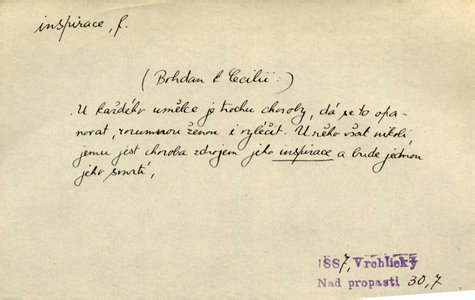 inspirace, f.
(Bohdan k Cecilii:)
U každého umělce je trochu choroby, dá se to opa-
novat, rozumnou ženou i vyléčit. U něho však nikoli,
jemu jest choroba zdrojem jeho inspirace a bude jednou
jeho smrtí,
1887, Vrchlický
Nad propastí 30,7